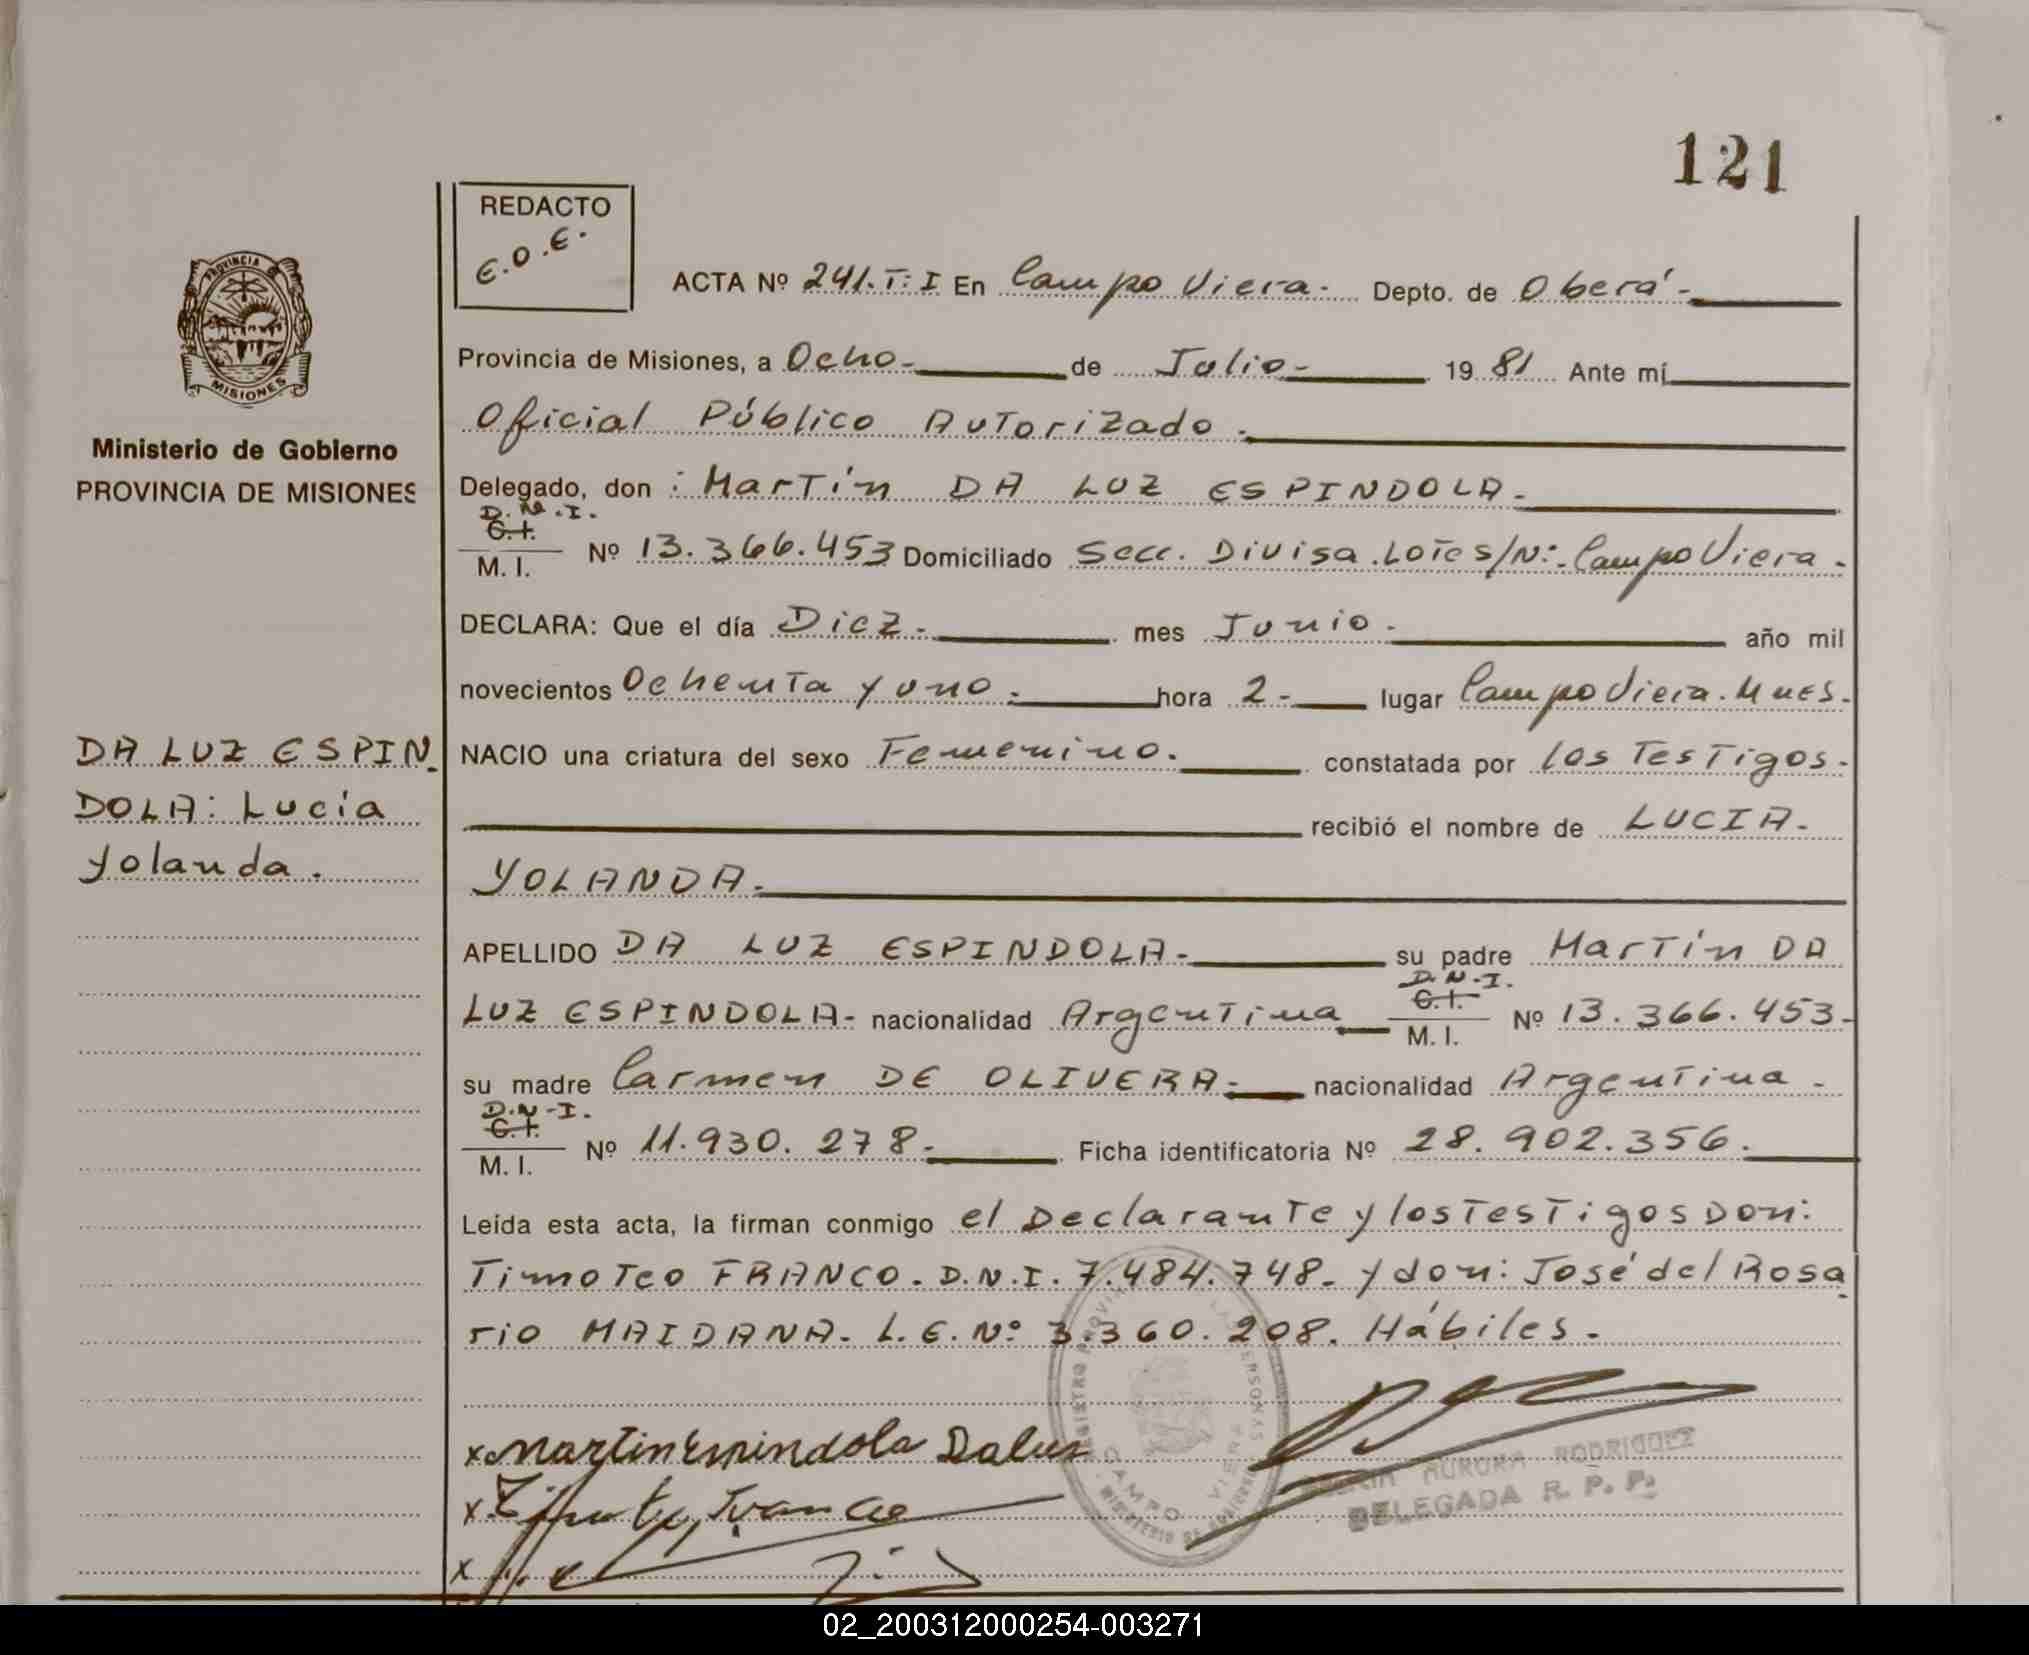 121
REDACTO
E.O.E.
PROVINCIA
MISIONES
Ministerio de Gobierno
PROVINCIA DE MISIONES
ACTA Nº 241.T: I En Campo Viera. Depto. de Oberá.
Provincia de Misiones, a Ocho de Julio 19 81 Ante mí
Oficial Público Autorizado.
Delegado, don : Martín DA LUZ ESPINDOLA.
D.N.I.
C.I.
M.I. Nº 13.366.453 Domiciliado Secc. Divisa. Lote s/Nº. Campo Viera.
DECLARA: Que el día Diez. mes Junio. año mil
novecientos Ochenta y uno. hora 2 lugar Campo Viera. Mnes.
NACIO una criatura del sexo Femenino. constatada por los Testigos.
recibió el nombre de LUCIA
YOLANDA.
DA LUZ ESPIN
DOLA: Lucía
Yolanda.
APELLIDO DA LUZ ESPINDOLA. su padre Martín DA
D.N.I.
C.I.
LUZ ESPINDOLA nacionalidad Argentina M.I. Nº 13.366.453
su madre Carmen DE OLIVERA. nacionalidad Argentina.
D.N.I.
C.I.
M.I. Nº 11.930.278. Ficha identificatoria Nº 28.902.356.
Leída esta acta, la firman conmigo el Declarante y los Testigos Don:
Timoteo FRANCO. D.N.I. 7.484.748. y don: José del Rosa
rio MAIDANA. L.E. Nº 3.360.208. Hábiles.
x Martin Espindola Daluz
x Timoteo Franco
x
CAMPO VIERA
AURORA RODRIGUEZ
DELEGADA R. P. P.
02_200312000254-003271